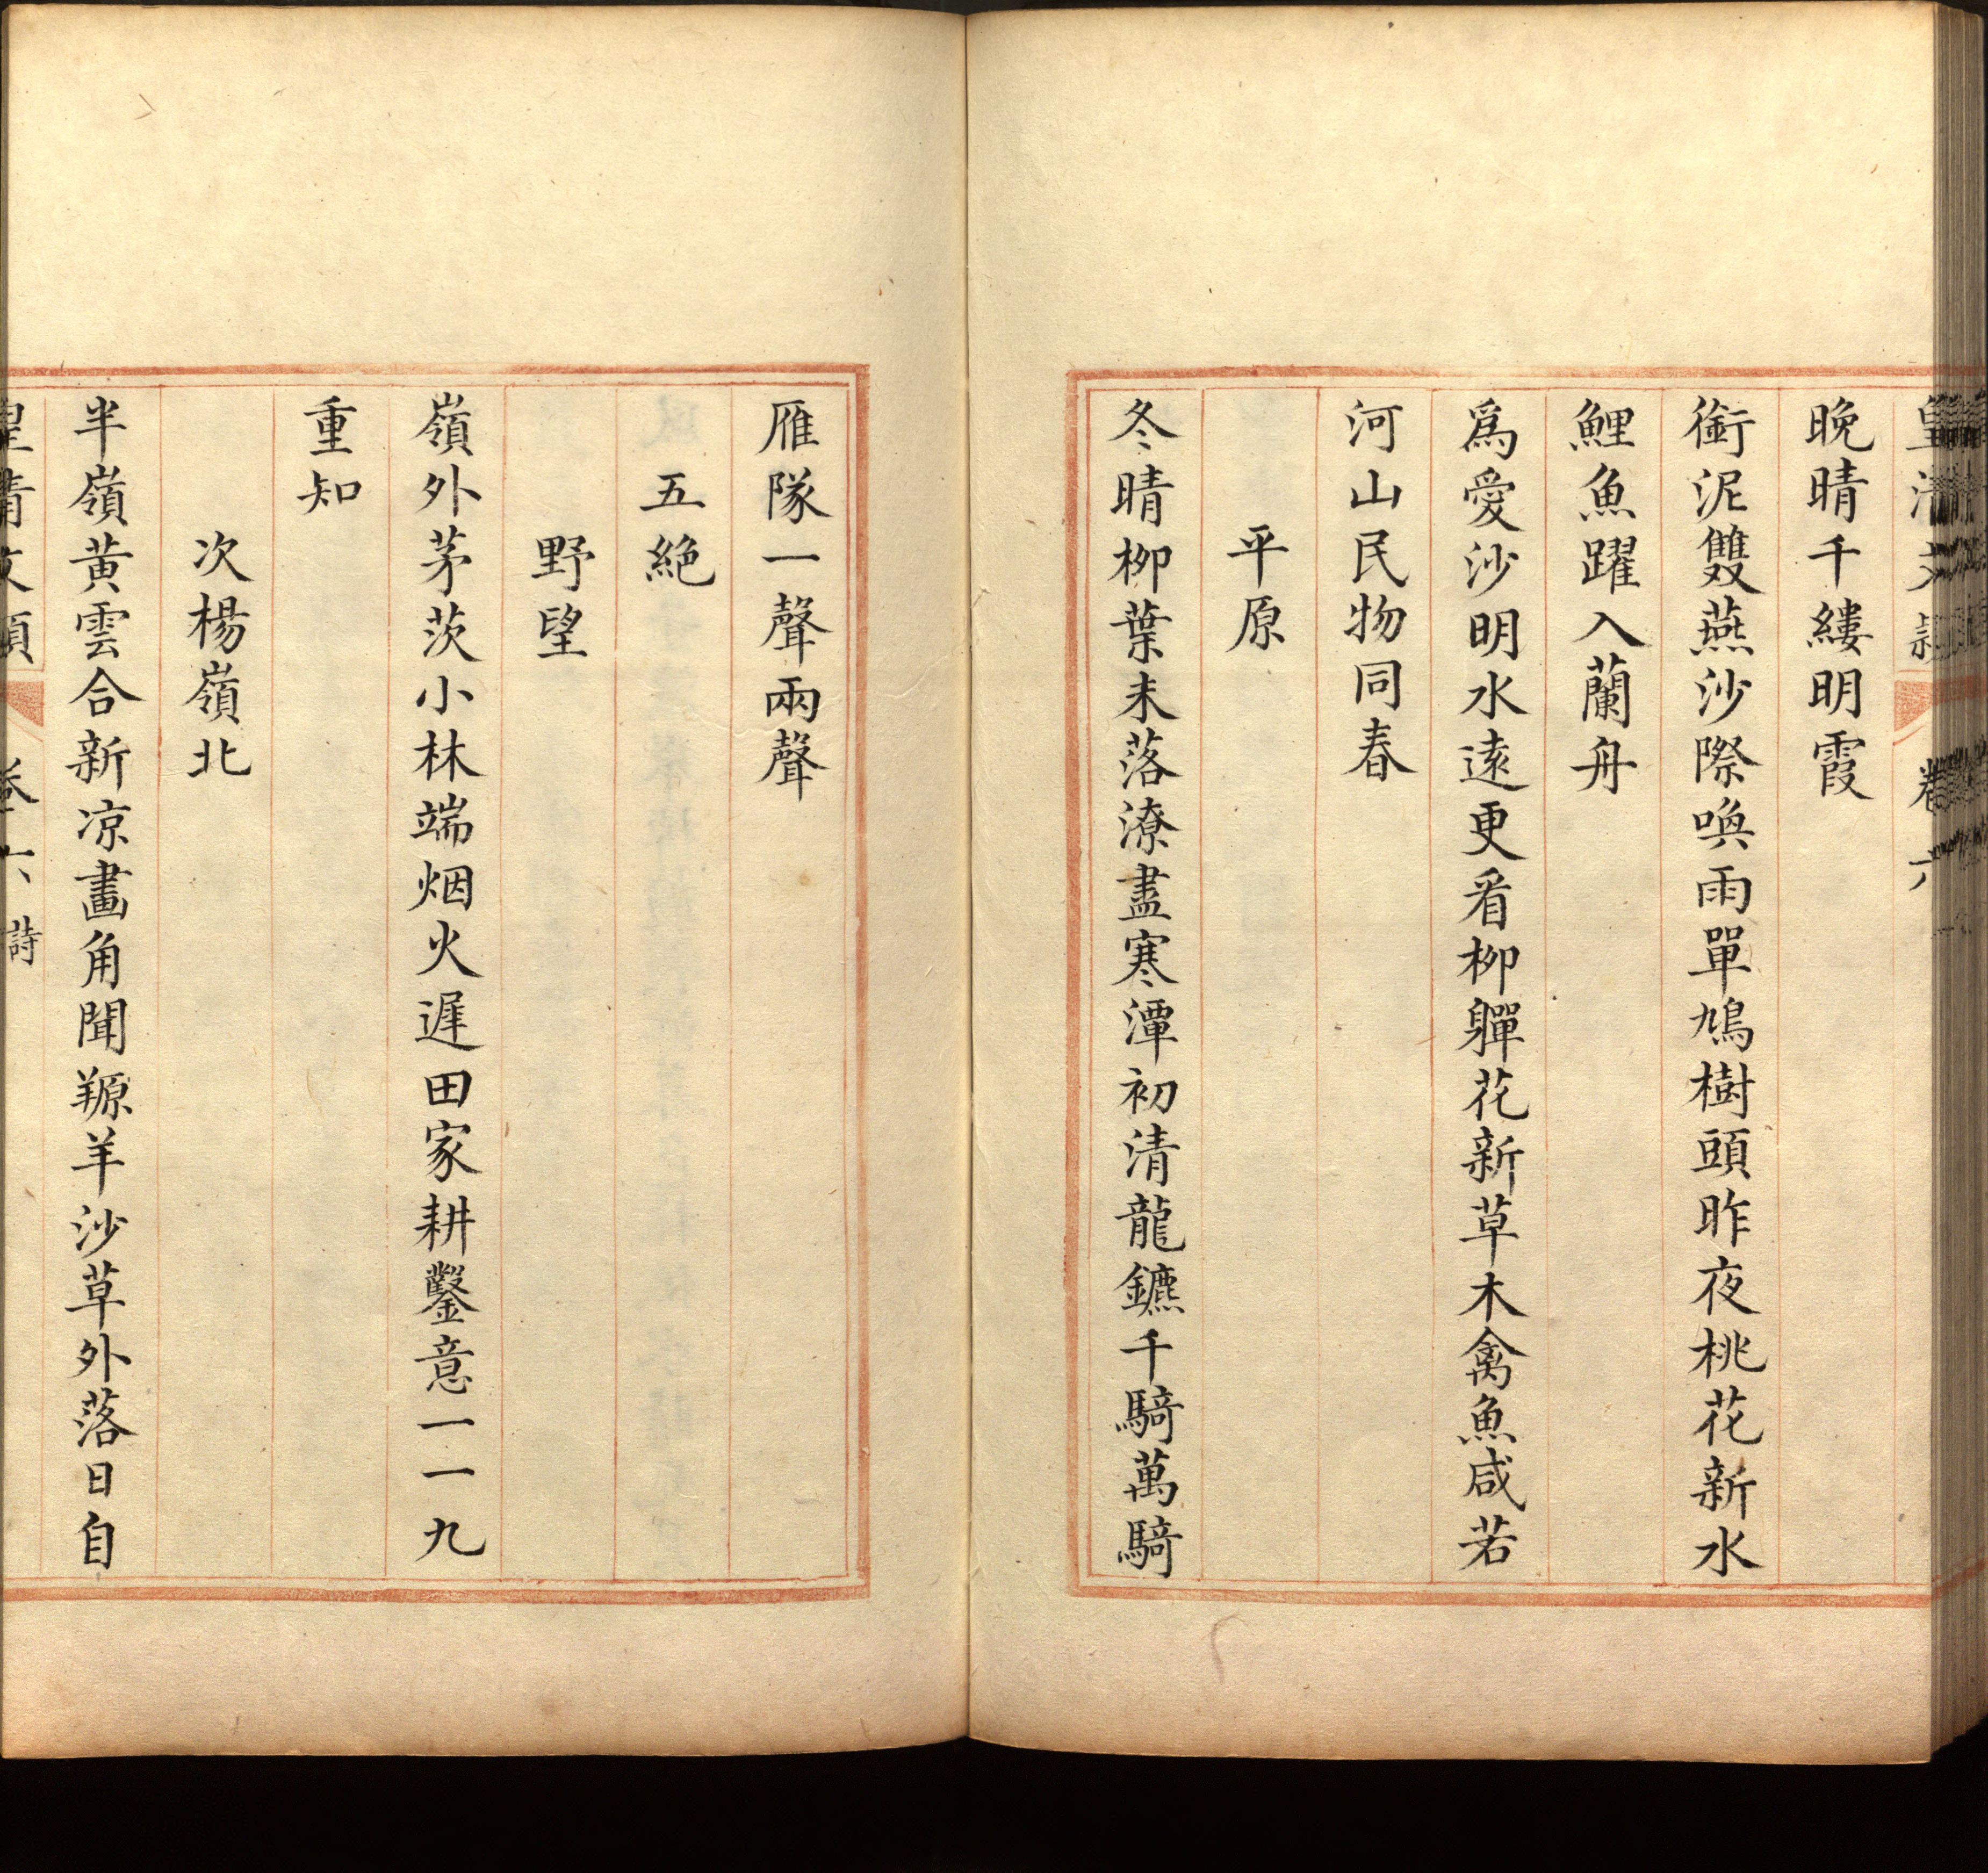 皇清文穎 卷六
晚晴千縷明霞
銜泥雙燕沙際喚雨單鳩樹頭昨夜桃花新水
鯉魚躍入蘭舟
爲愛沙明水遠更看柳嚲花新草木禽魚咸若
河山民物同春
平原
冬晴柳葉未落潦盡寒潭初清龍鑣千騎萬騎
雁隊一聲兩聲
五絕
野望
嶺外茅茨小林端烟火遲田家耕鑿意一一九
重知
次楊嶺北
半嶺黃雲合新凉畫角聞羱羊沙草外落日自
皇清文穎 卷六 詩